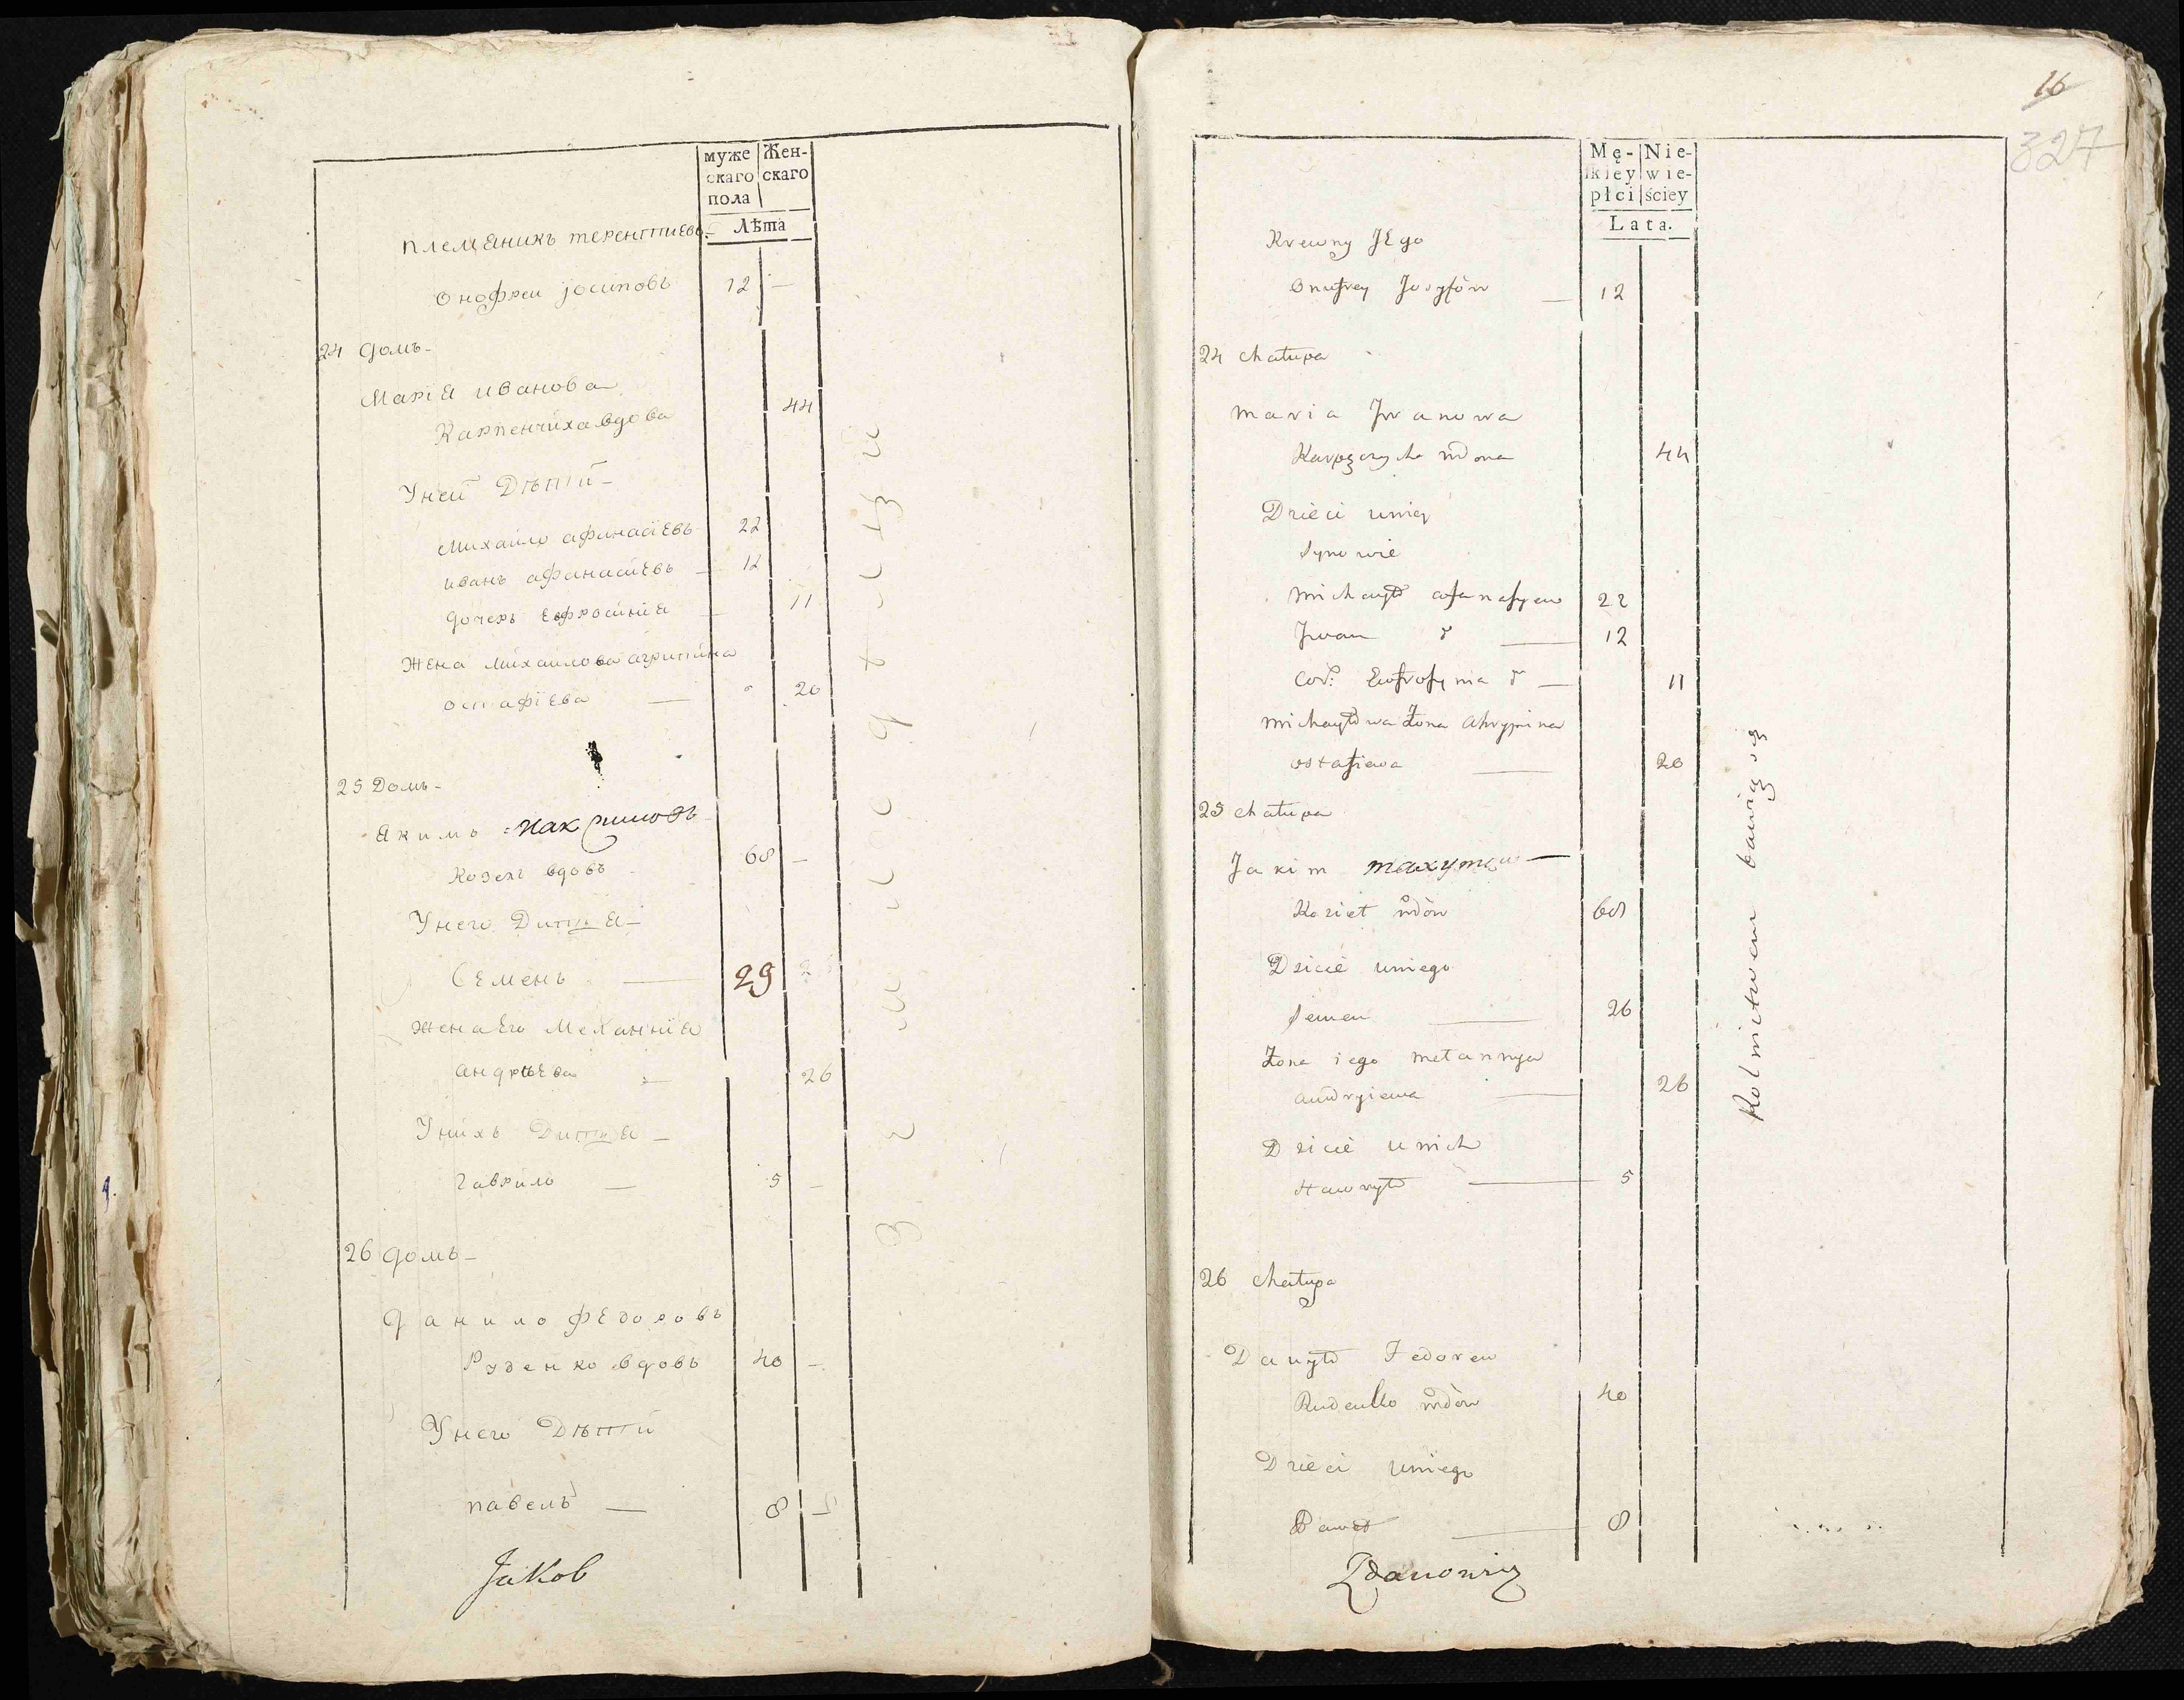 муже
скаго
пола
Жен-
скаго
Лѣта
племяникъ терентиевъ
Онофреи јосиповъ 12 —
24 домъ —
Мария иванова
Карпенчиха вдова 44
У неи Дѣти —
Михаило афанасіевъ 22
иванъ афанасиевъ — 12
дочерь Евфросиниа — 11
Жена михаилова агрипина
остафіева — 20
25 Домъ —
Якимъ
Козелъ вдовъ 68 —
У него Дитя —
Семенъ — 29
жена Его Меланния
андрѣева — 26
У нихъ Дитя —
гаврило — 5 —
26 домъ —
данило Федоровъ
Руденко вдовъ 40 —
У него Дѣти
павелъ — 8
Jakob
16
327
Mę-
kiey
płci
Nie-
wie-
ściey
Lata.
Krewny JEgo
Onufrey Jozyfów — 12
24 chałupa
Maria Jwanowa
wdowa 44
Dzieci u niey
Synowie
Michayło afanasyew 22
Jwan d — 12
Cór: Eufrosynia d — 11
Michayłowa Żona Ahrypina
ostafiewa — 20
25 chałupa
Jakim maxymow —
Kozieł wdów 68
Dzicie u niego
Semen — 26
Żona iego Mełannya
andryiewa — 26
Dzicie u nich
Hawryło — 5
26 chałupa
Danyło Fedorew
Rudenko wdów 40
Dzieci u niego
Paweł — 8
Zdanowicz
Rolnictwem bawią się